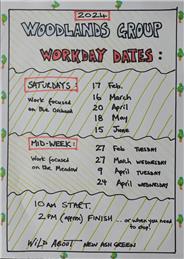 2024
WOODLANDS GROUP
WORKDAY DATES:
SATURDAYS: 17 Feb.
Work focused 16 March
on the Orchard 20 April
18 May
15 June
MID-WEEK: 27 Feb TUESDAY
Work focused 27 March WEDNESDAY
on the Meadow 9 April TUESDAY
24 April WEDNESDAY
10AM START.
2PM (approx) FINISH ... or when you need
to stop!
WILD ABOUT NEW ASH GREEN